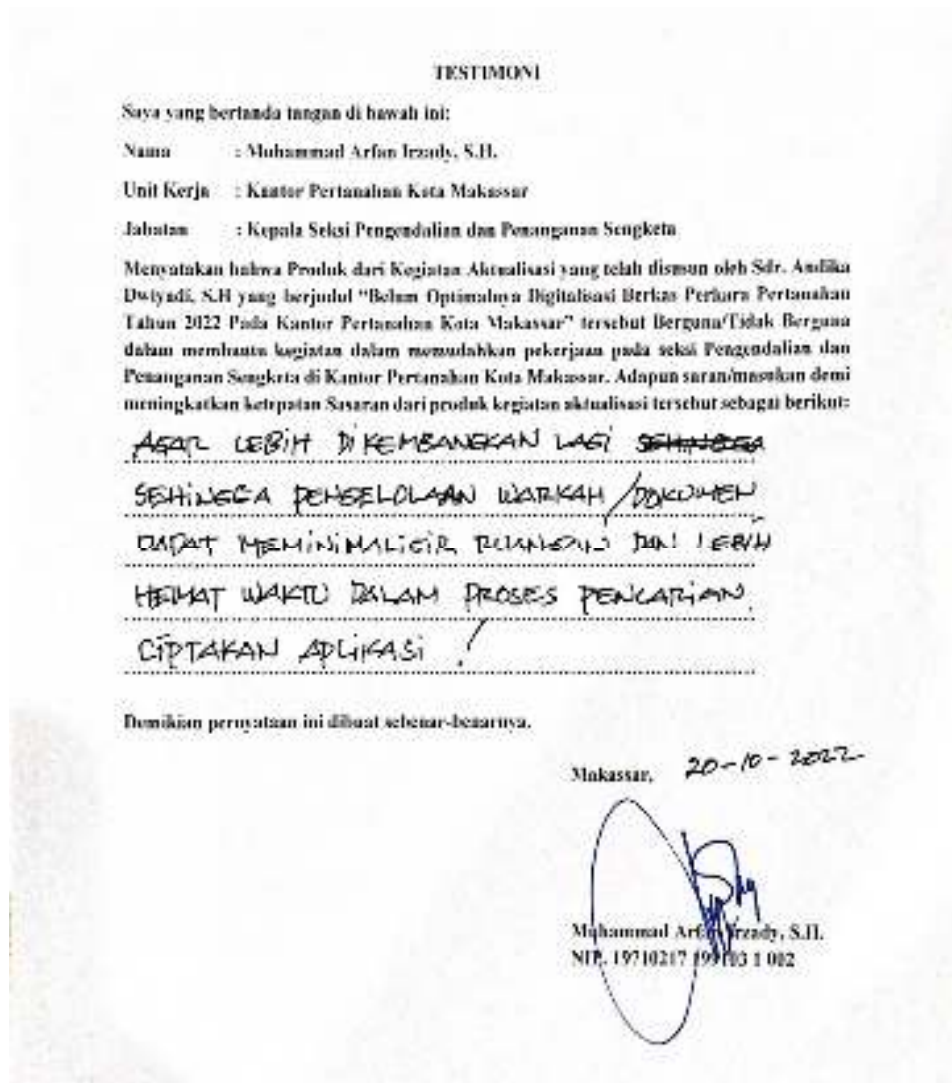 TESTIMONI
Saya yang bertanda tangan di bawah ini:
Nama : Muhammad Arfan Irzady, S.H.
Unit Kerja : Kantor Pertanahan Kota Makassar
Jabatan : Kepala Seksi Pengendalian dan Penanganan Sengketa
Menyatakan bahwa Produk dari Kegiatan Aktualisasi yang telah disusun oleh Sdr. Andika
Dwiyadi, S.H yang berjudul “Belum Optimalnya Digitalisasi Berkas Perkara Pertanahan
Tahun 2022 Pada Kantor Pertanahan Kota Makassar” tersebut Berguna/Tidak Berguna
dalam membantu kegiatan dalam memudahkan pekerjaan pada seksi Pengendalian dan
Penanganan Sengketa di Kantor Pertanahan Kota Makassar. Adapun saran/masukan demi
meningkatkan ketepatan Sasaran dari produk kegiatan aktualisasi tersebut sebagai berikut:
AGAR LEBIH DIKEMBANGKAN LAGI SEHINGGA
SEHINGGA PENGELOLAAN WARKAH/DOKUMEN
DAPAT MEMINIMALISIR RUANGAN DAN LEBIH
HEMAT WAKTU DALAM PROSES PENCARIAN.
CIPTAKAN APLIKASI !
Demikian pernyataan ini dibuat sebenar-benarnya.
Makassar, 20-10-2022
Muhammad Arfan Irzady, S.H.
NIP. 19710217 199103 1 002